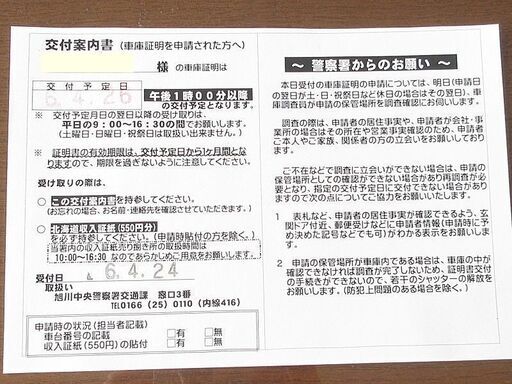 交付案内書（車庫証明を申請された方へ）
様 の車庫証明は
交付予定日
6.4.26
午後1時00分以降
の交付予定となります。
※ 交付予定月日の翌日以降の受け取りは、
平日の9：00～16：30の間でお願いします。
（土曜日・日曜日・祝祭日は取扱い出来ません。）
※ 証明書の有効期限は、交付予定日から1ケ月間とな
りますので、期限を過ぎないように注意してください。
受け取りの際は、
○ この交付案内書を持参してください。
（お忘れの場合、お名前・連絡先を確認させていただきます。）
○ 北海道収入証紙（550円分）
を必ず持参してください。（申請時貼付の方を除く。）
当署内の収入証紙売り捌き所の取扱時間は
10:00～16:30 なのであらかじめご用意をお願いします。
受付日 6.4.24
取扱い
旭川中央警察署交通課 窓口3番
TEL0166（25）0110（内線416）
申請時の状況（担当者記載）
車台番号の記載 □有 □無
収入証紙（550円）の貼付 □有 □無
～ 警察署からのお願い ～
本日受付の車庫証明の申請については、明日（申請日
の翌日が土・日・祝祭日など休日の場合はその翌日）、車
庫調査員が申請の保管場所を調査確認にお伺いします。
調査の際は、申請者の居住事実や、申請者が会社・事
業所の場合はその所在や営業事実確認のため、申請者
ご本人やご家族、関係者の方の立会いをお願いしており
ます。
ご不在などで調査に立会いができない場合は、申請の
保管場所としての確認ができない場合があり再調査が必
要となり、指定の交付予定日に交付できない場合があり
ますので次の点についてご協力をお願いいたします。
1 表札など、申請者の居住事実が確認できるよう、玄
関ドア付近、郵便受けなどに申請者情報（申請時に予
め決めた記号などでも可）がわかる表示をお願いしま
す。
2 申請の保管場所が車庫内である場合は、車庫の中が
確認できなければ調査が完了しないため、証明書交付
の手続きができないので、若干のシャッターの解放をお
願いします。（防犯上問題のある場合を除く。）